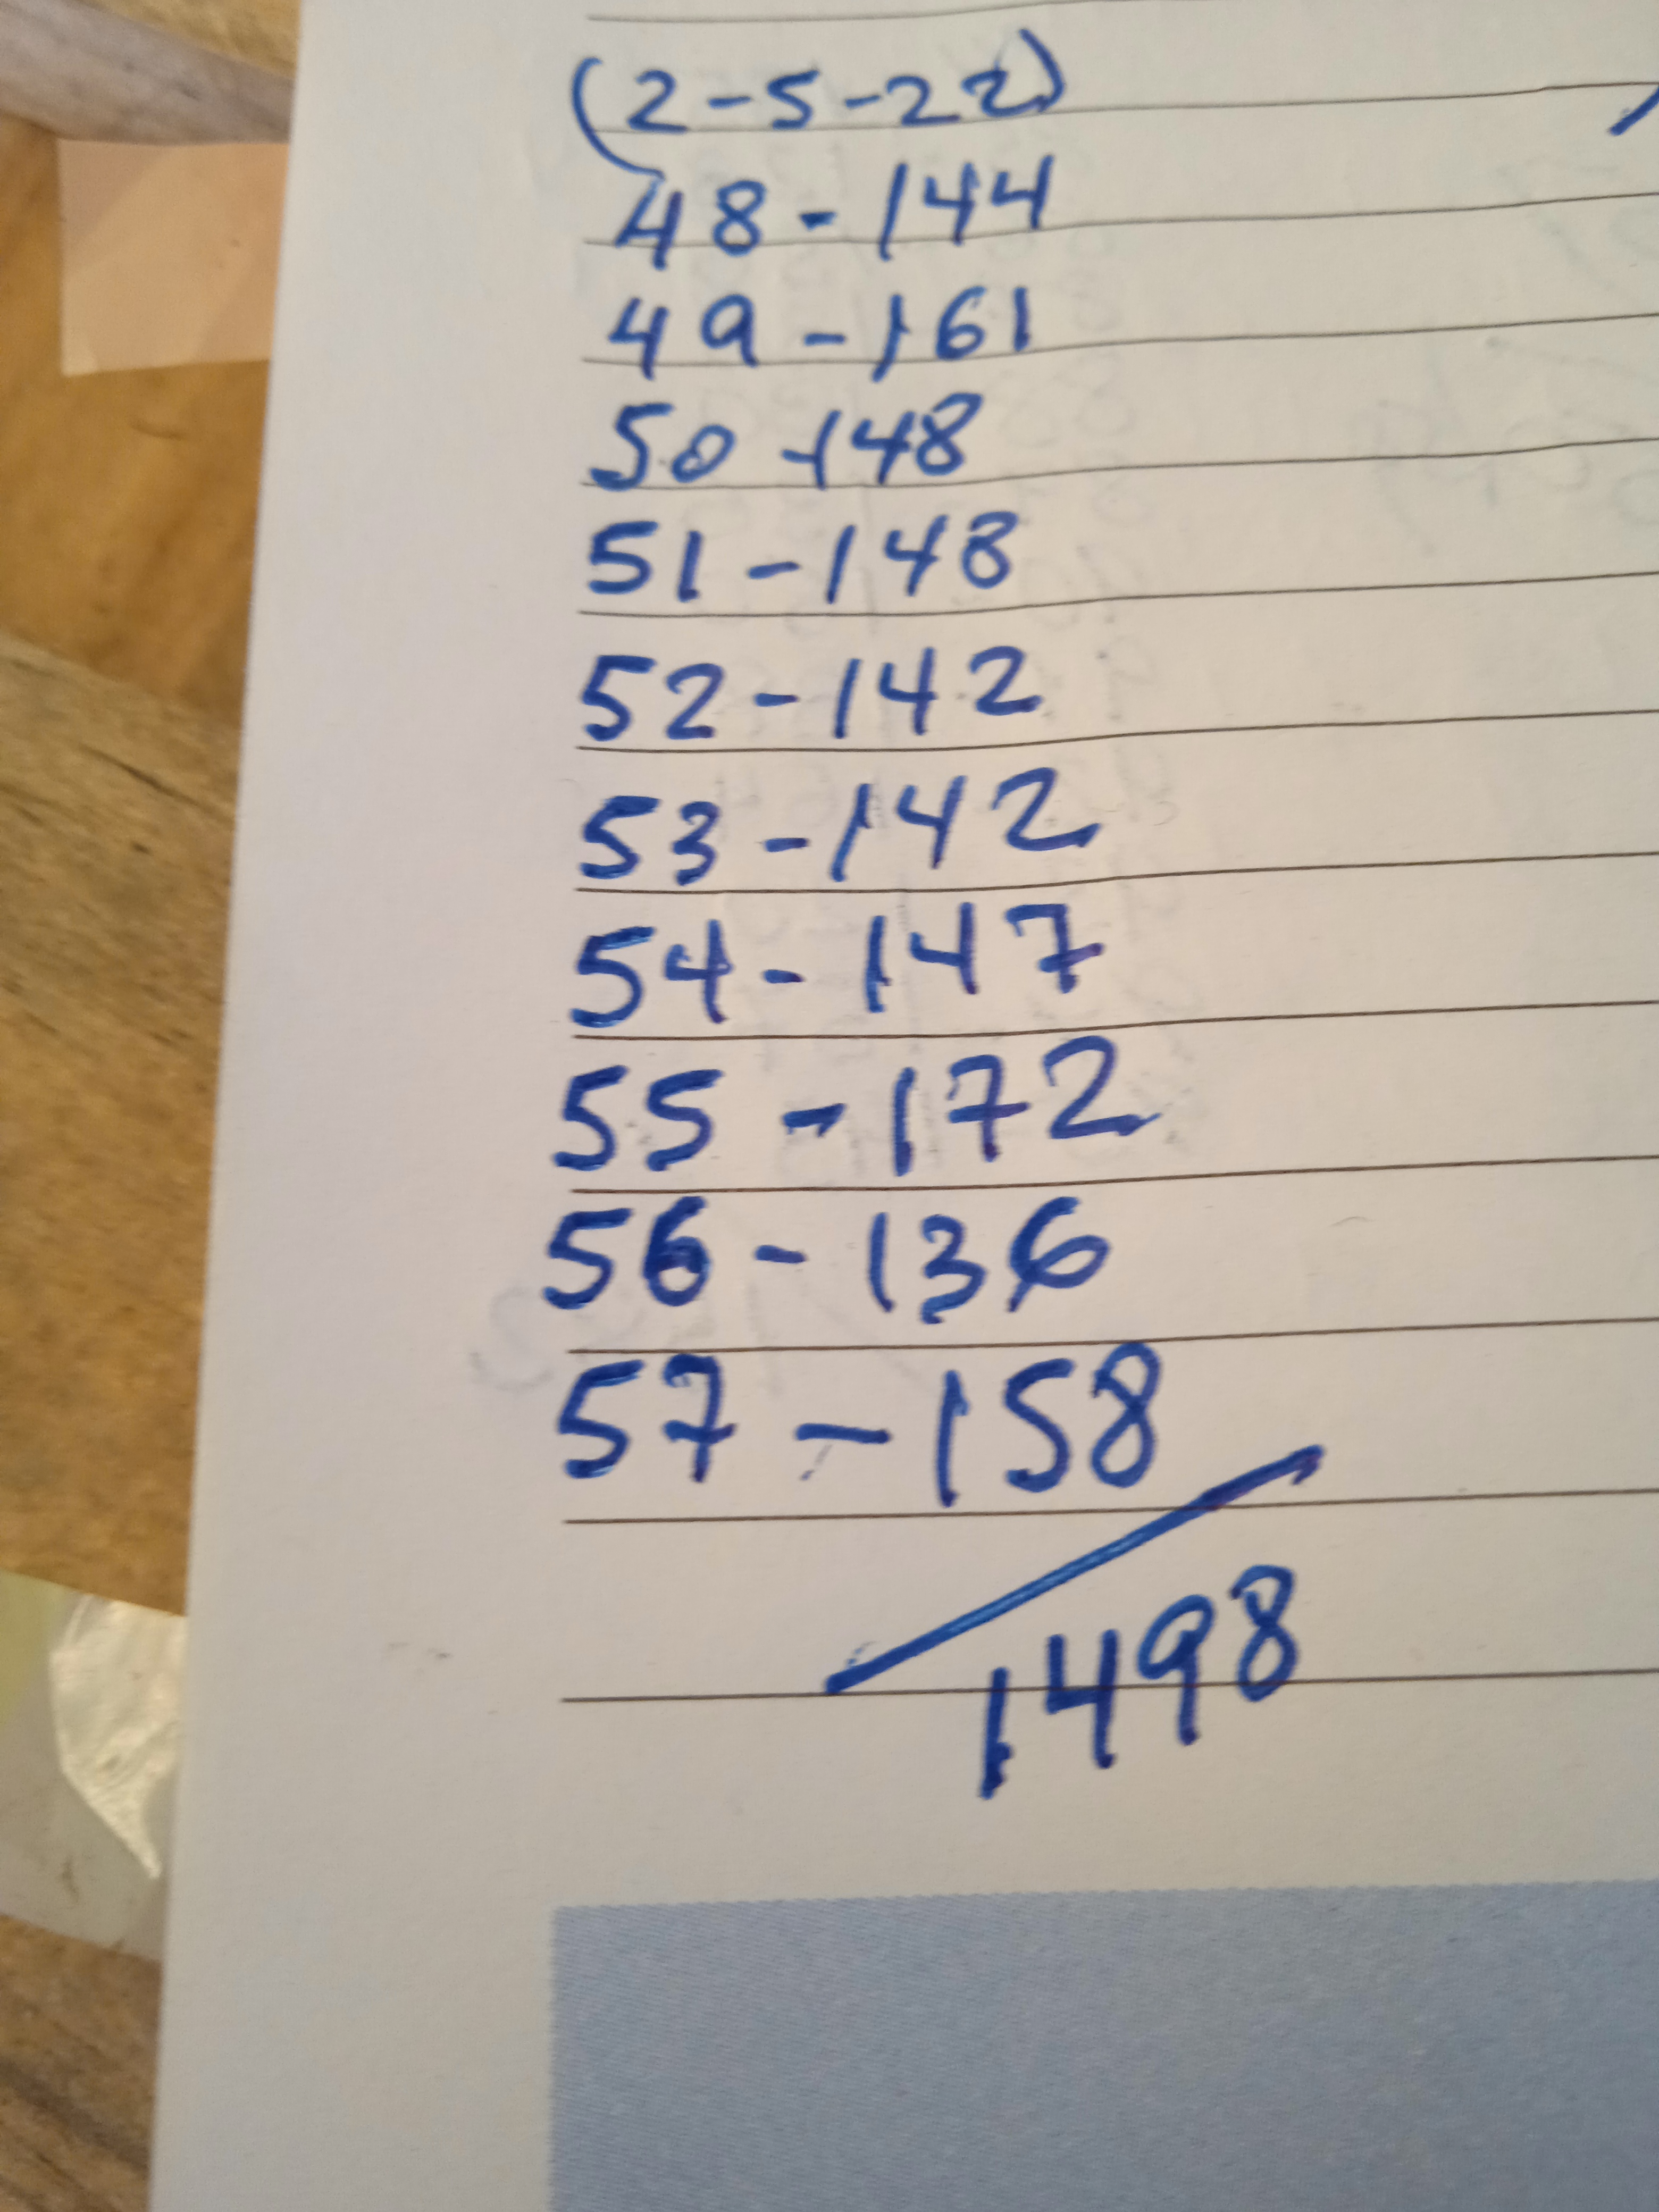 (2-5-22)
48-144
49-161
50-148
51-148
52-142
53-142
54-147
55-172
56-136
57-158
1498